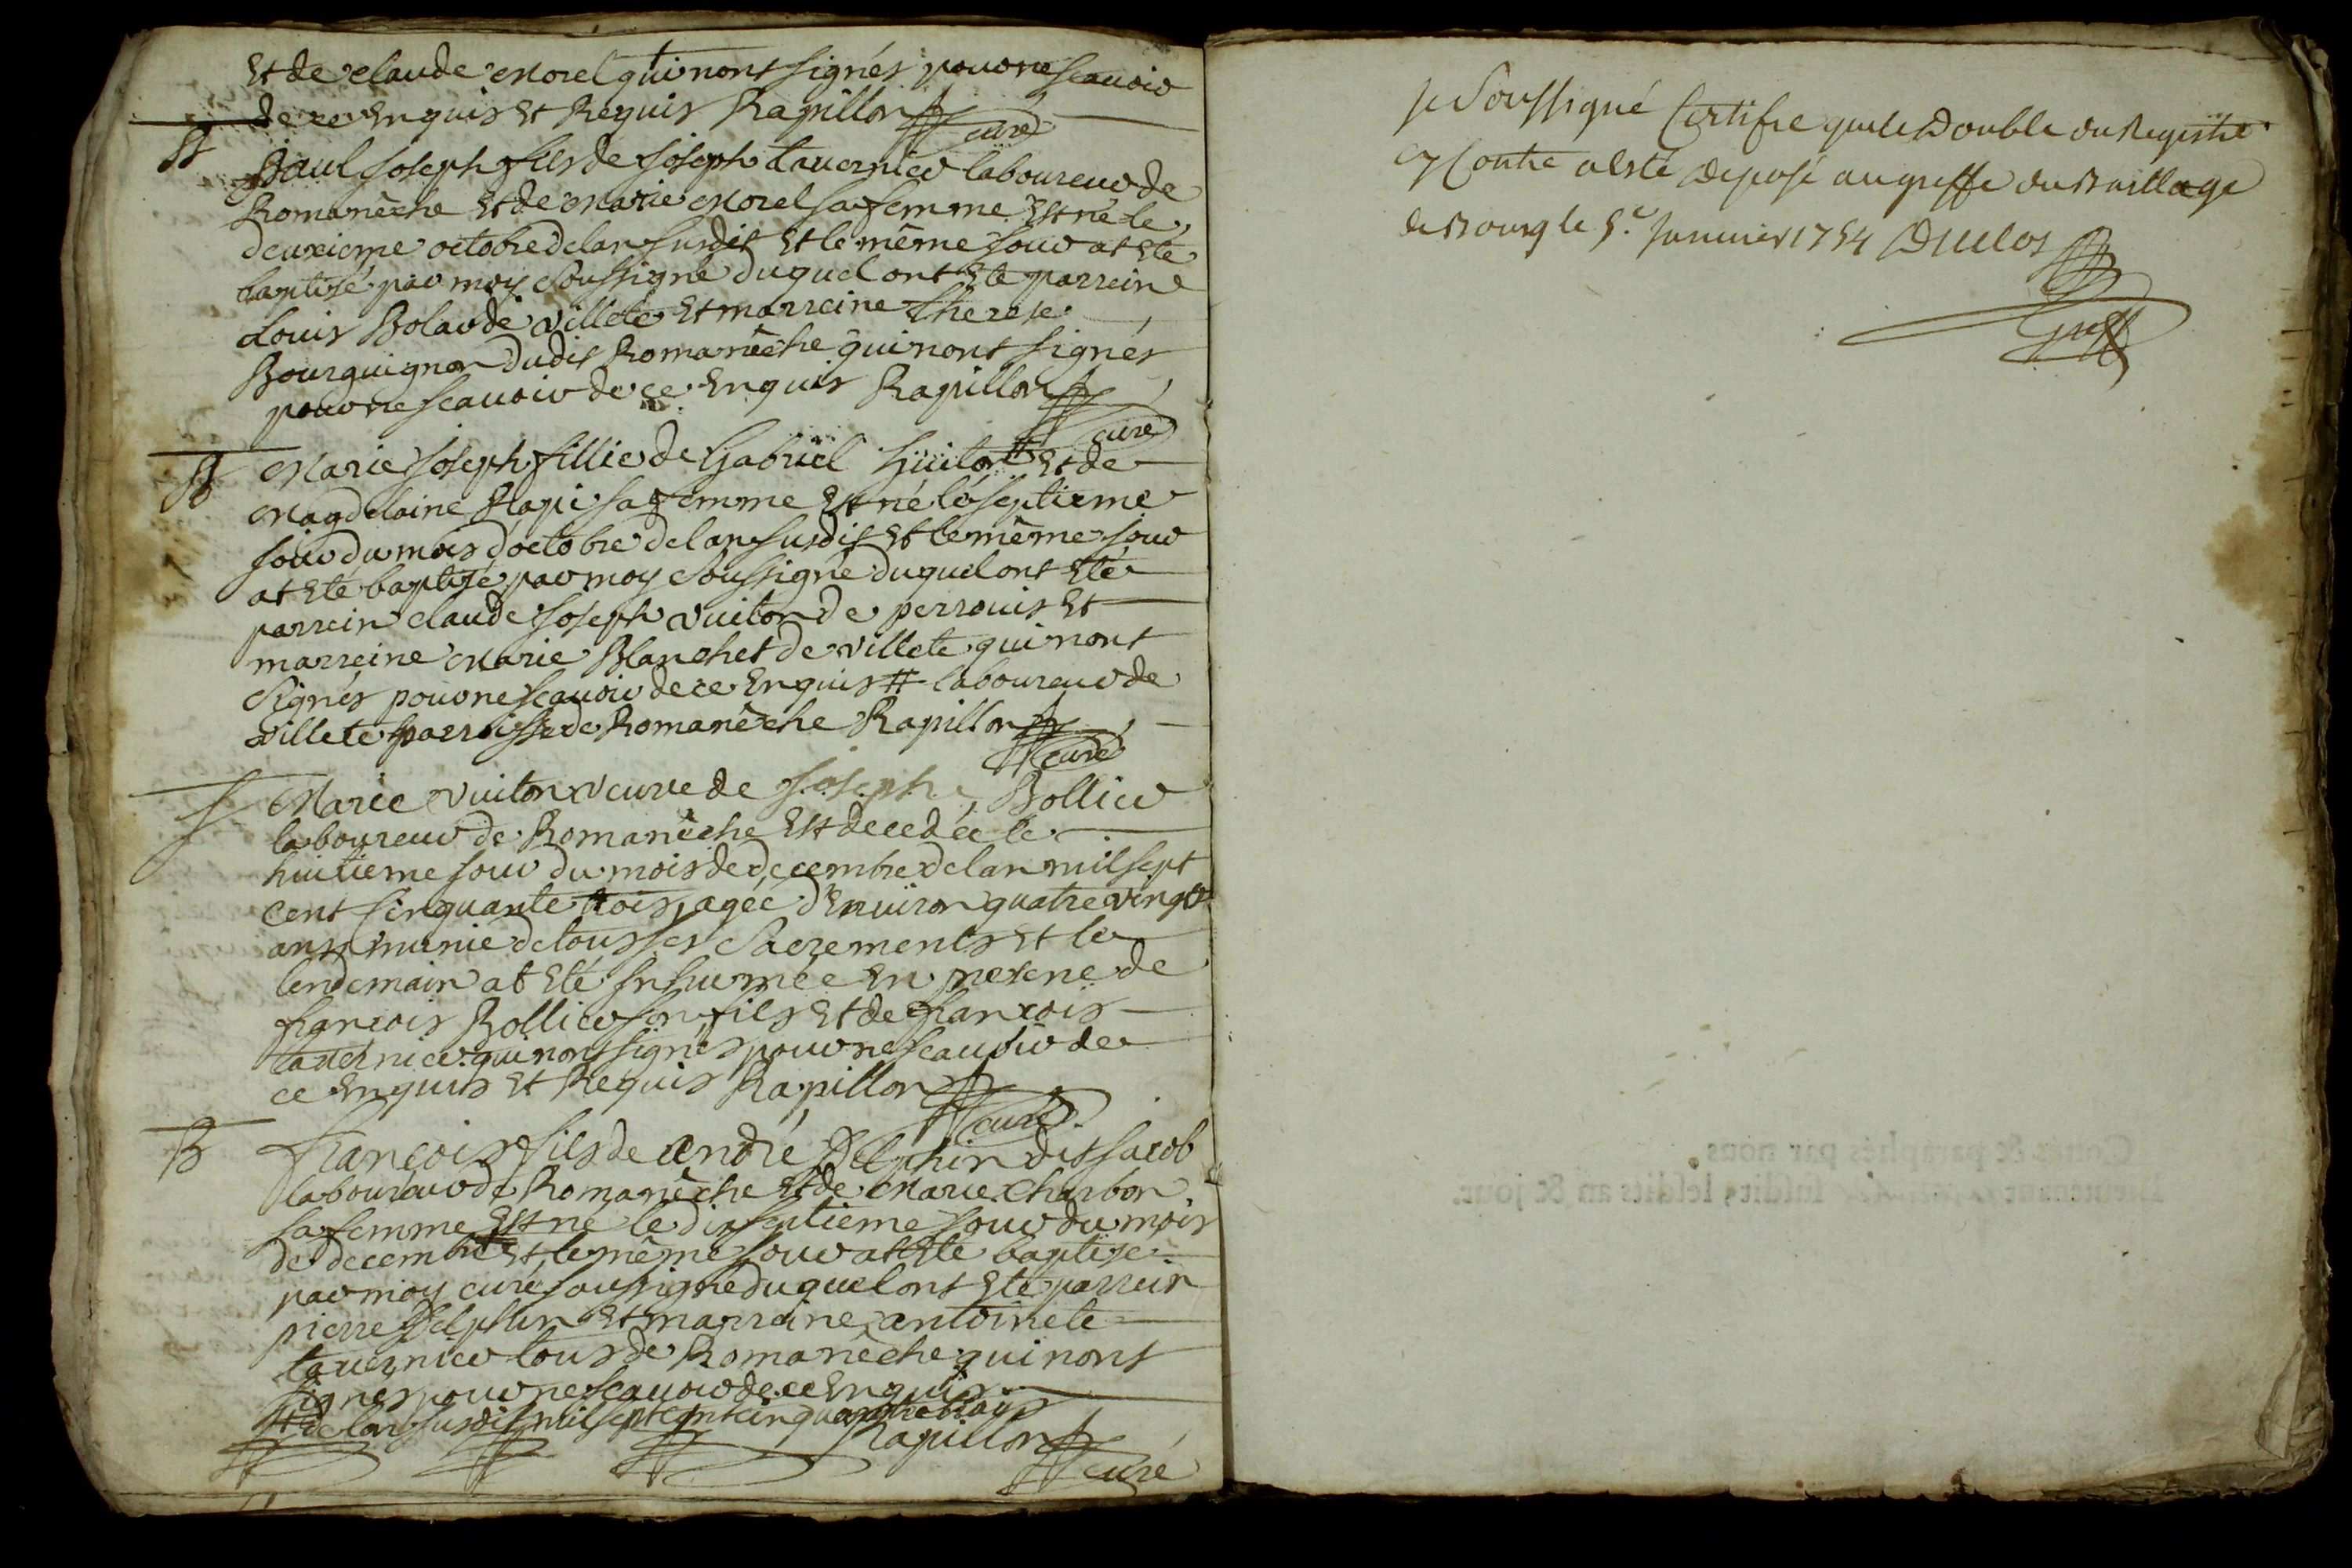 Et de claude Morel qui nont signés pour ne scauoir
de ce Enquis Et Requis Rapillon
curé
B
Paul Joseph fils de Joseph tauernier laboureur de
Romanêche Et de Marie Morel sa femme Est né le
deuxieme octobre de lan susdit Et le même jour at Ete
baptisé par moy soussigné duquel ont Ete parrein
Louis Bolar de villete Et marreine therese
Bourguignon dudit Romanêche qui nont signés
pour ne scauoir de ce Enquis Rapillon
curé
B
Marie Joseph fillie de Gabriel huiton # Et de
Magdelaine Rapi sa femme Est né le septieme
jour du mois doctobre de lan susdit Et le même jour
at Ete baptisé par moy soussigné duquel ont Ete
parrein claude Joseph vuiton de perrouis Et
marreine Marie Blanchet de villete qui nont
signés pour ne scauoir de ce Enquis # laboureur de
villete parroisse de Romanêche Rapillon
curé
Marie vuiton veuve de Joseph Bollier
laboureur de Romanêche Est decedée le
huitieme jour du mois de decembre de lan mil sept
cent cinquante trois, agée d'Enuiron quatre vingt
ans munie de tous ses sacrements Et le
lendemain at Eté Inhumée En presene de
françois Bollier son fils Et de françois
tauernier qui nont signés pour ne scauoir de
ce Enquis Et Requis Rapillon
curé
B
François fils de André Delphin dit Jacob
laboureur de Romanêche Et de Marie Charbon
sa femme Est né le dixseptieme jour du mois
de decembre # Et le même jour at Ete baptisé
par moy curé soussigné duquel ont Ete parrein
pierre Delphin Et marreine antoinete
tauernier tous de Romanêche qui nont
signés pour ne scauoir de ce Enquis
# de lan susdit mil sept cent cinquante trois
Rapillon
curé
Je Soussigné Certifie que le Double du Registre
Cy Contre a Esté Deposé au greffe du Baillage
de Bourg le 5.e Januier 1754 Duclos
Greff
Cottés & paraphés par nous
Lieutenant susdit, lesdits an & jour.